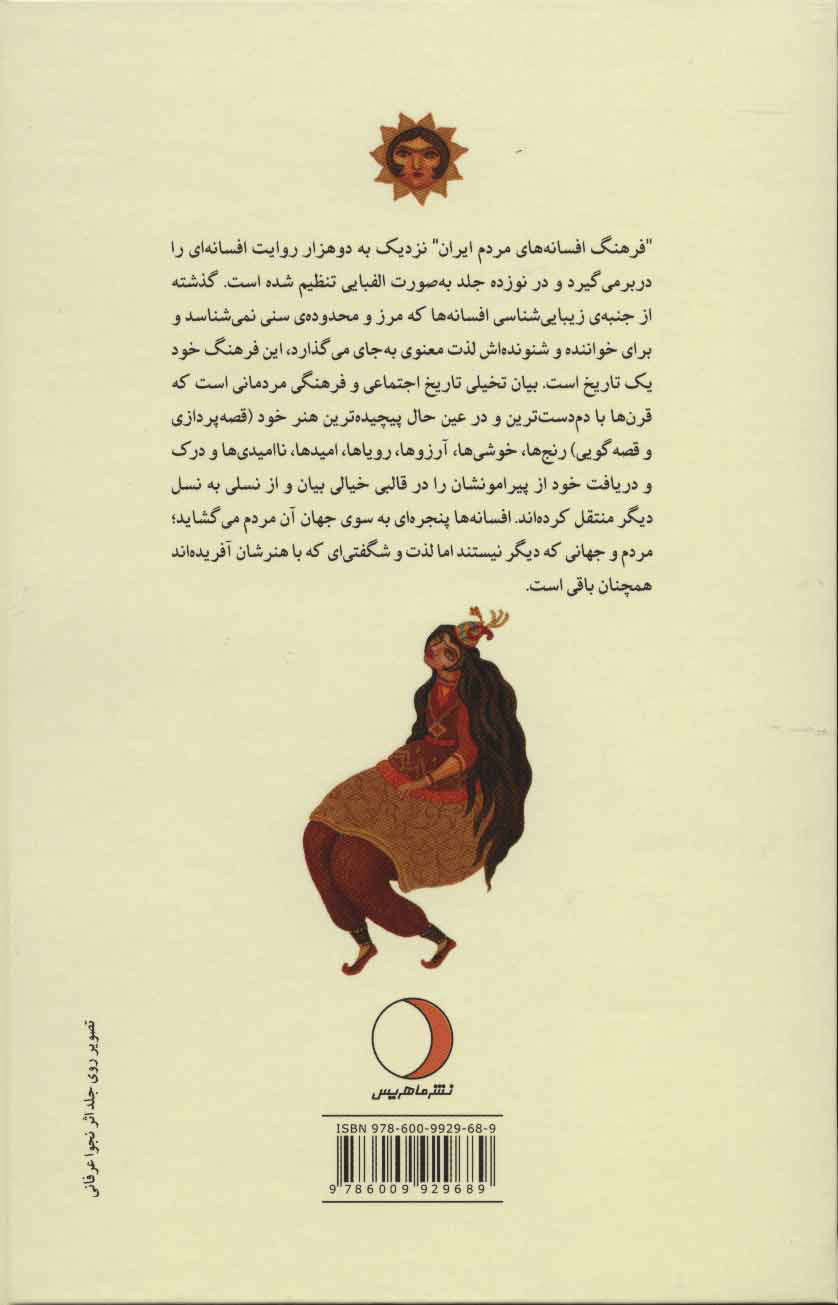 "فرهنگ افسانه‌های مردم ایران" نزدیک به دوهزار روایت افسانه‌ای را
دربرمی‌گیرد و در نوزده جلد به‌صورت الفبایی تنظیم شده است. گذشته
از جنبه‌ی زیبایی‌شناسی افسانه‌ها که مرز و محدوده‌ی سنی نمی‌شناسد و
برای خواننده و شنونده‌اش لذت معنوی به‌جای می‌گذارد، این فرهنگ خود
یک تاریخ است. بیان تخیلی تاریخ اجتماعی و فرهنگی مردمانی است که
قرن‌ها با دم‌دست‌ترین و در عین حال پیچیده‌ترین هنر خود (قصه‌پردازی
و قصه‌گویی) رنج‌ها، خوشی‌ها، آرزوها، رویاها، امیدها، ناامیدی‌ها و درک
و دریافت خود از پیرامونشان را در قالبی خیالی بیان و از نسلی به نسل
دیگر منتقل کرده‌اند. افسانه‌ها پنجره‌ای به سوی جهان آن مردم می‌گشاید؛
مردم و جهانی که دیگر نیستند اما لذت و شگفتی‌ای که با هنرشان آفریده‌اند
همچنان باقی است.
نشر ماهریس
ISBN 978-600-9929-68-9
9 786009 929689
تصویر روی جلد اثر نجوا عرفانی